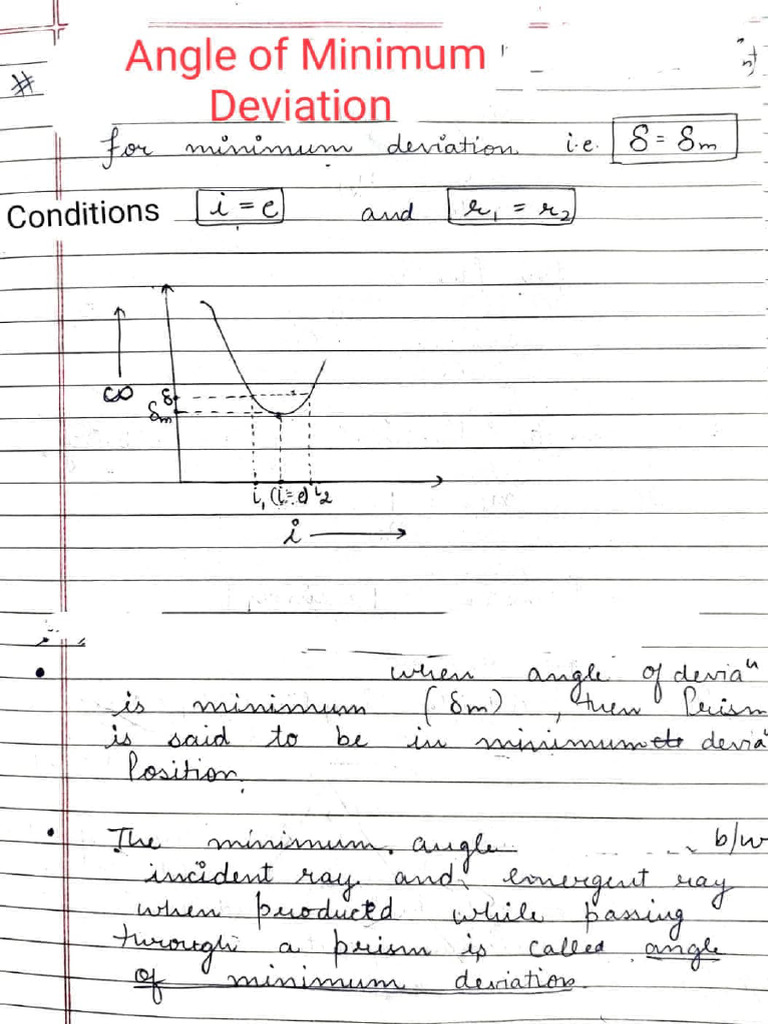 Angle of Minimum
Deviation
#
for minimum deviation i.e. δ = δm
Conditions i = e and r₁ = r₂
δ
δm
i₁ (i=e) i₂
i
• when angle of deviaⁿ
is minimum (δm), then Prism
is said to be in minimum devia
Position.
• The minimum angle b/w
incident ray and emergent ray
when producted while passing
through a prism is called angle
of minimum deviation.